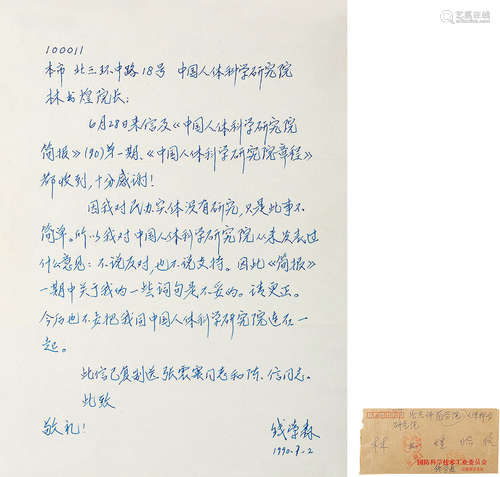 100011
本市 北三环中路18号 中国人体科学研究院
林书煌院长:
6月28日来信及《中国人体科学研究院
简报》(90)第一期、《中国人体科学研究院章程》
都收到,十分感谢!
因我对民办实体没有研究,只是此事不
简单。所以我对中国人体科学研究院从未发表过
什么意见:不说反对,也不说支持。因此《简报》
一期中关于我的一些词句是不妥的。请更正。
今后也不要把我同中国人体科学研究院连在一
起。
此信已复制送张震寰同志和陈信同志。
此致
敬礼!
钱学森
1990.7.2
国防科学技术工业委员会